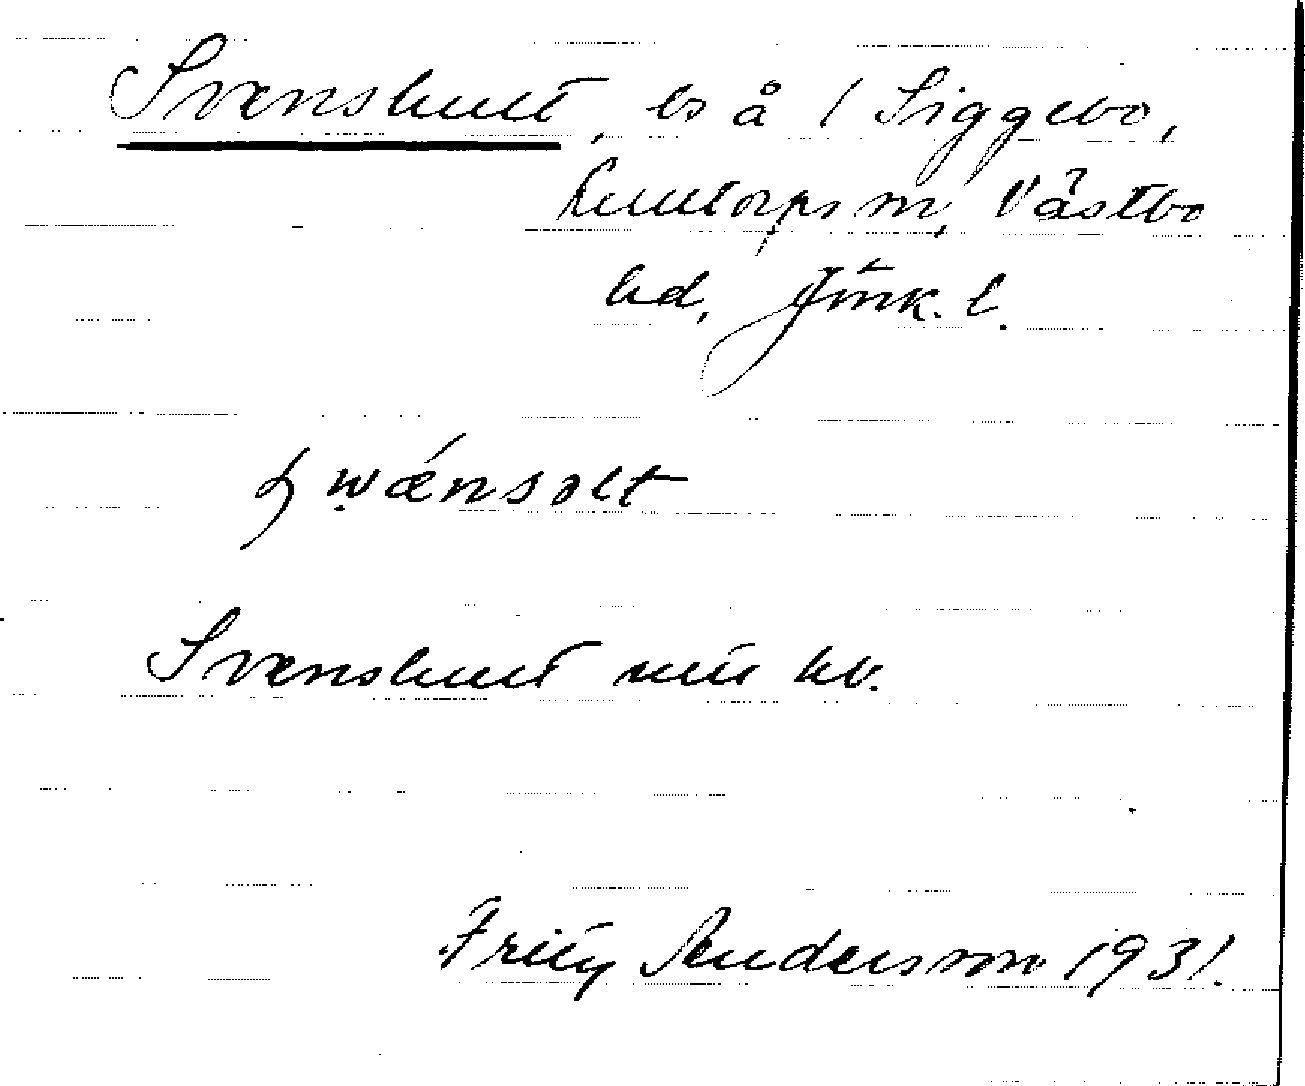 Svenshult, ls å 1 Siggebo,
Kulltorps sn, Västbo
hd, Jönk. l.
swænsolt
Svenshult nu hv.
Fritz Andersson 1931.